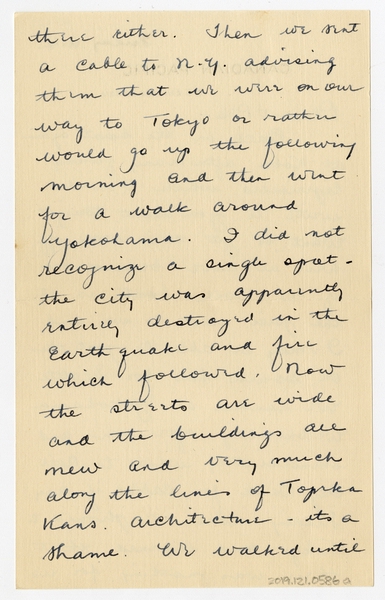 there either. Then we sent
a cable to N.Y. advising
them that we were on our
way to Tokyo or rather
would go up the following
morning and then went
for a walk around
Yokohama. I did not
recognize a single spot -
the city was apparently
entirely destroyed in the
Earthquake and fire
which followed. Now
the streets are wide
and the buildings all
new and very much
along the lines of Topeka
Kans. architecture - its a
shame. We walked until
2019.121.0586a